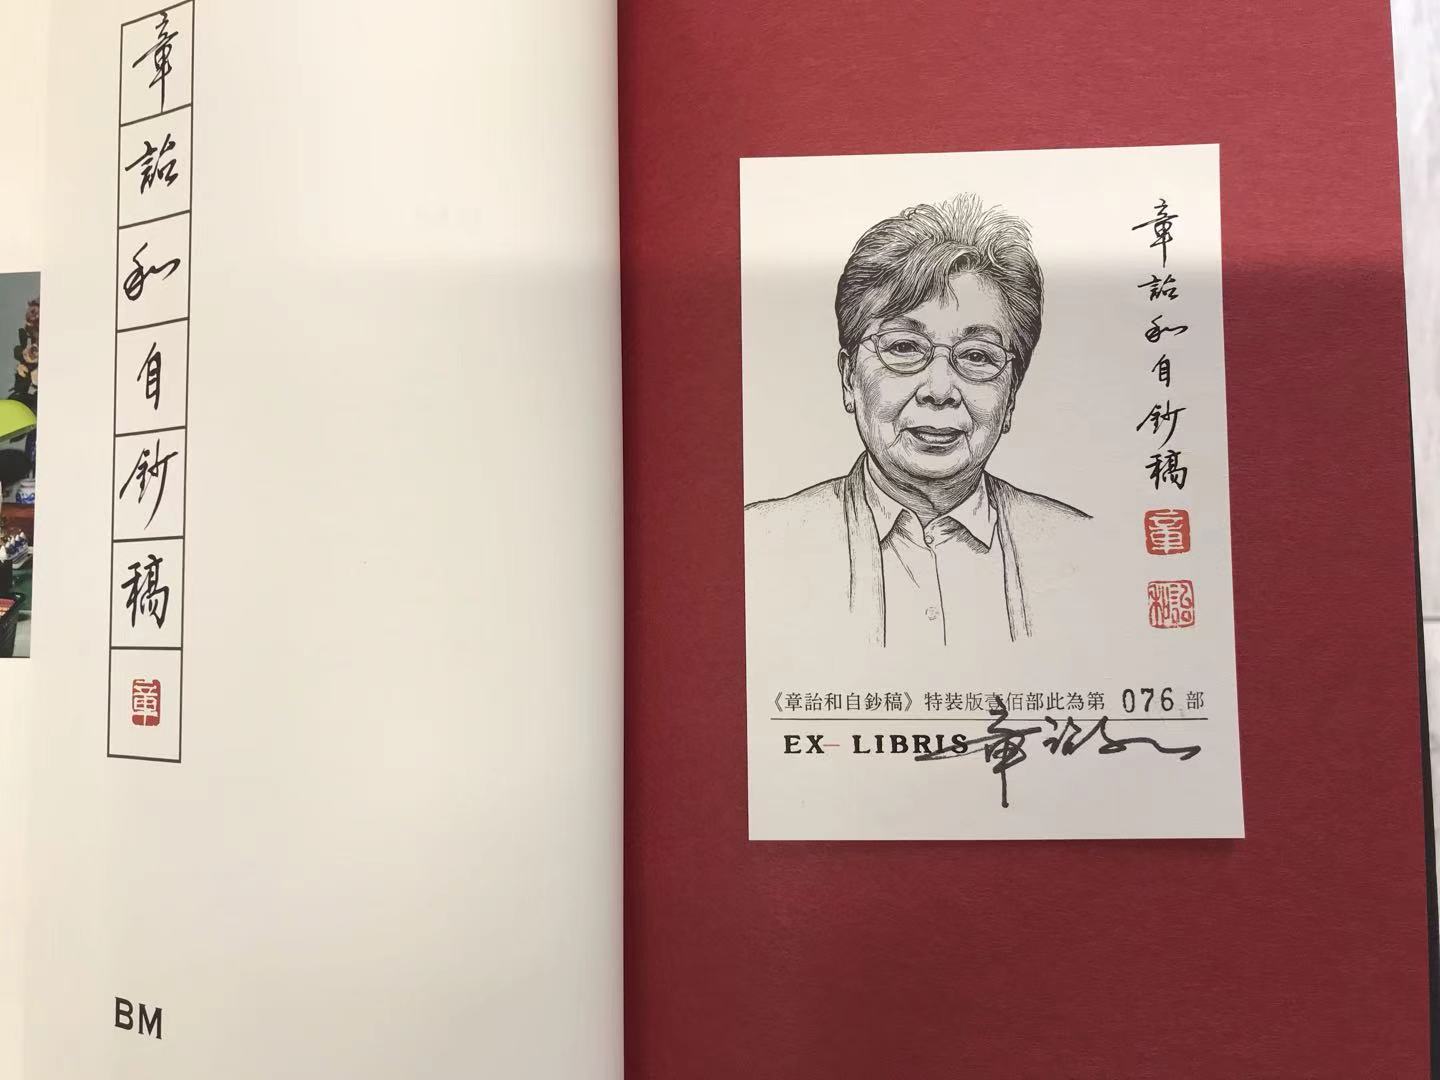 章詒和自鈔稿
章
BM
章詒和自鈔稿
章
詒和
《章詒和自鈔稿》特装版壹佰部此為第 076 部
EX-LIBRIS
章詒和